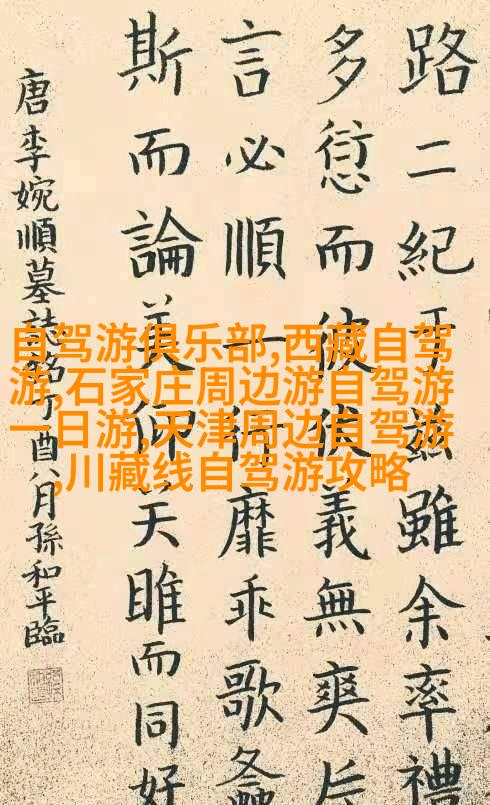 路二紀于茲雖余率禮
多愆而彼義無爽
言必順一行靡乖歌
斯而論美雎而同好
唐李婉順墓誌銘丁酉八月孫和平臨
自驾游俱乐部,西藏自驾
游,石家庄周边游自驾游
一日游,天津周边自驾游
,川藏线自驾游攻略